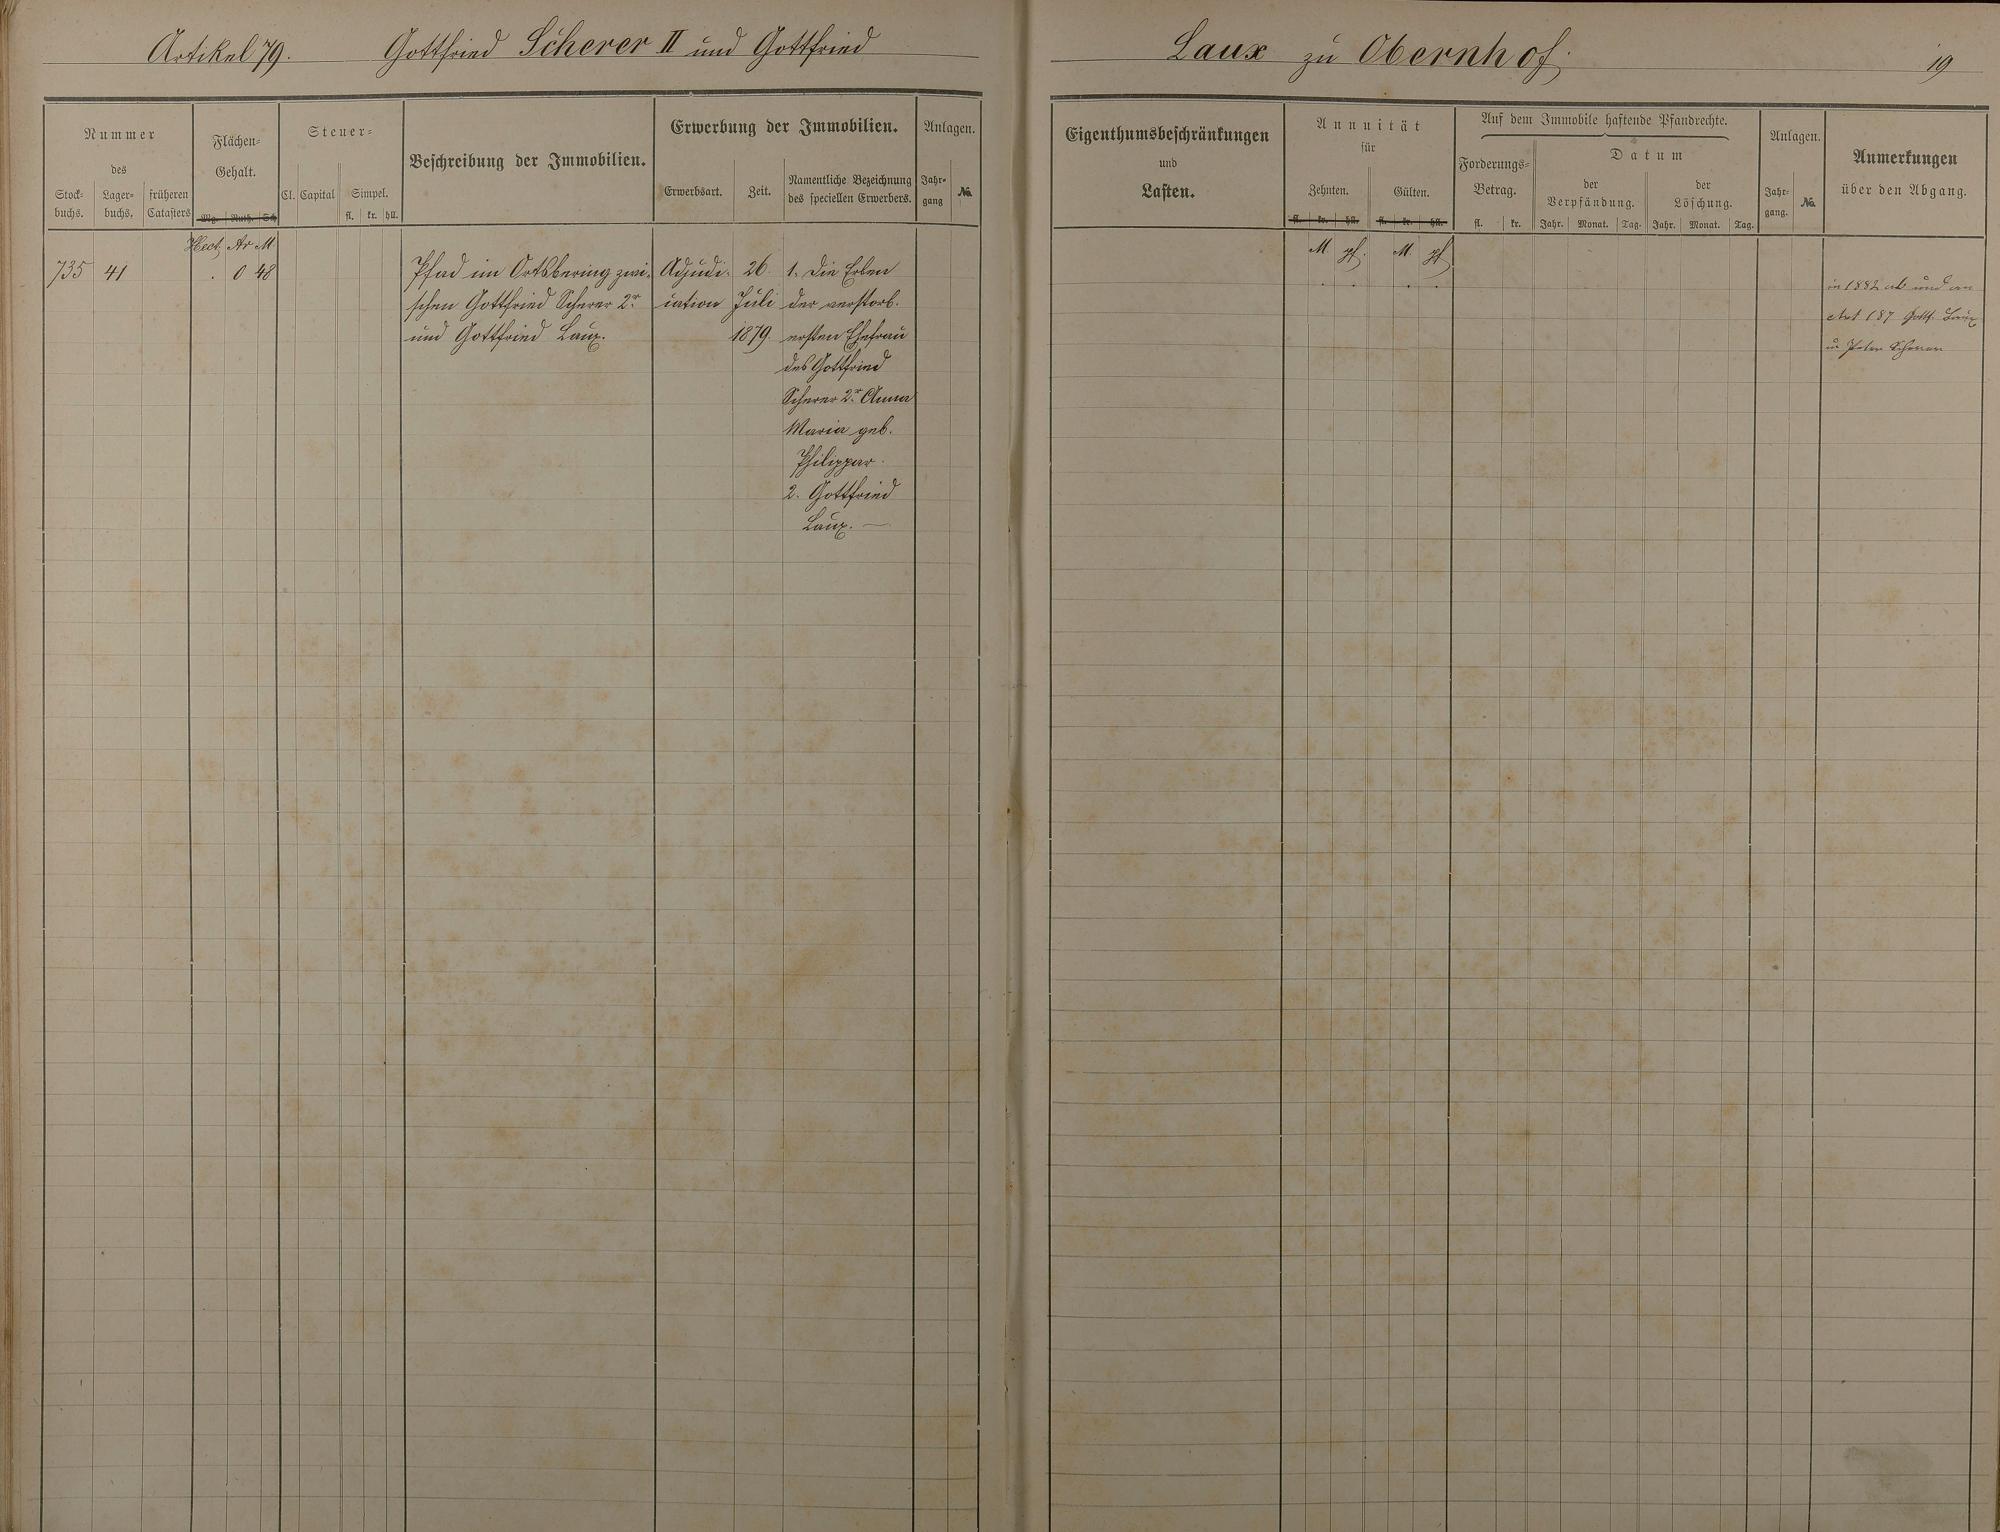 Artikel 79. Gottfried Scherer II und Gottfried Laux zu Obernhof.
19
Nummer
des
Stock-buchs.
Lager-buchs.
früheren Catasters
Flächen-Gehalt.
Mg. Ruth. Sch
Steuer-
Cl. Capital
Simpel.
fl. kr. hll.
Beschreibung der Immobilien.
Erwerbung der Immobilien.
Erwerbsart.
Zeit.
Namentliche Bezeichnung
des speciellen Erwerbers.
Anlagen.
Jahr-gang
No.
Eigenthumsbeschränkungen
und
Lasten.
Annuität
für
Zehnten.
Gülten.
fl. kr. hll.
fl. kr. hll.
Auf dem Immobile haftende Pfandrechte.
Forderungs-Betrag.
fl. kr.
Datum
der
Verpfändung.
der
Löschung.
Jahr. Monat. Tag.
Jahr. Monat. Tag.
Anlagen.
Jahr-gang.
No.
Anmerkungen
über den Abgang.
Hect. Ar M
735 41 . 0 48
Pfad im Ortsbering zwi-
schen Gottfried Scherer 2r
und Gottfried Laux.
Adjudi-
cation
26
Juli
1879.
1. Die Erben
der verstorb.
ersten Ehefrau
des Gottfried
Scherer 2r. Anna
Maria geb.
Philippar.
2. Gottfried
Laux. —
M pf. M. pf
in 1882 ab und an
Art 187 Gottf. Laux
u. Peter Scherer